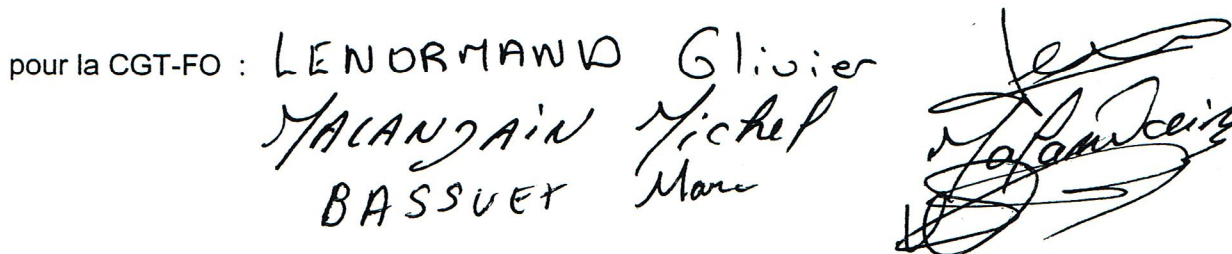 pour la CGT-FO : LENORMAND Olivier
MALANDAIN Michel Malandain
BASSUET Marc